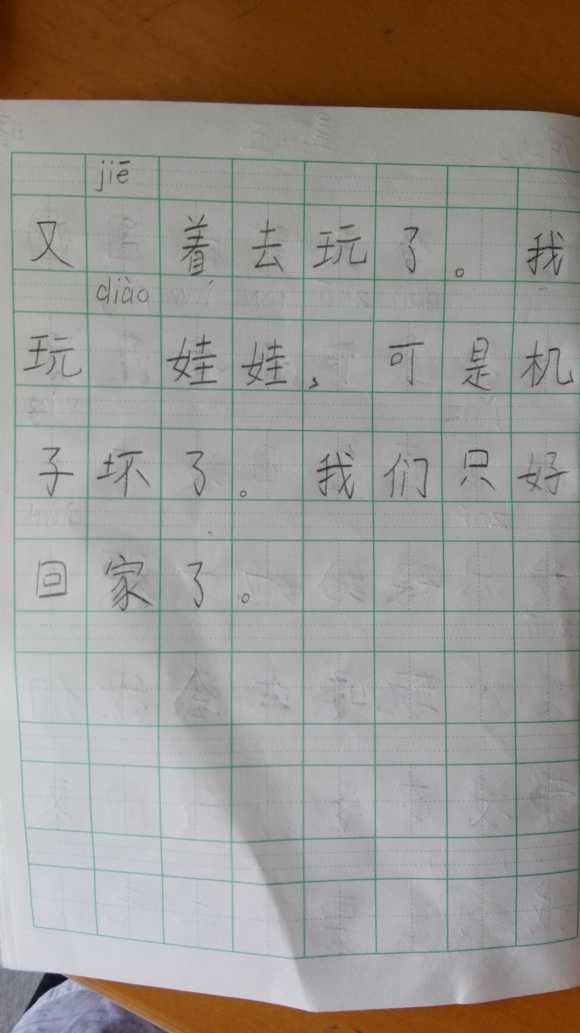 jiē
又 着去玩了。我
diào
玩 娃娃，可是机
子坏了。我们只好
回家了。